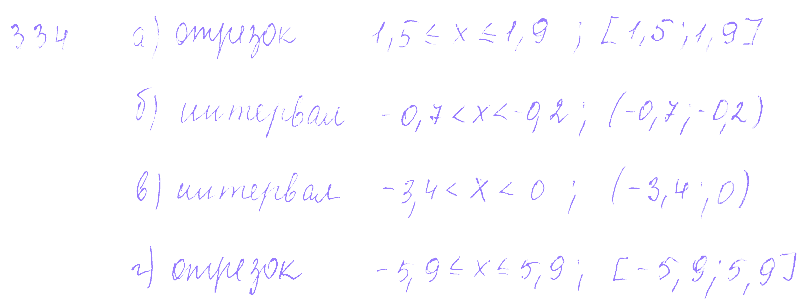 334 а) отрезок 1,5 ≤ x ≤ 1,9 ; [1,5 ; 1,9]
б) интервал -0,7 < x < -0,2 ; (-0,7 ; -0,2)
в) интервал -3,4 < x < 0 ; (-3,4 ; 0)
г) отрезок -5,9 ≤ x ≤ 5,9 ; [-5,9 ; 5,9]